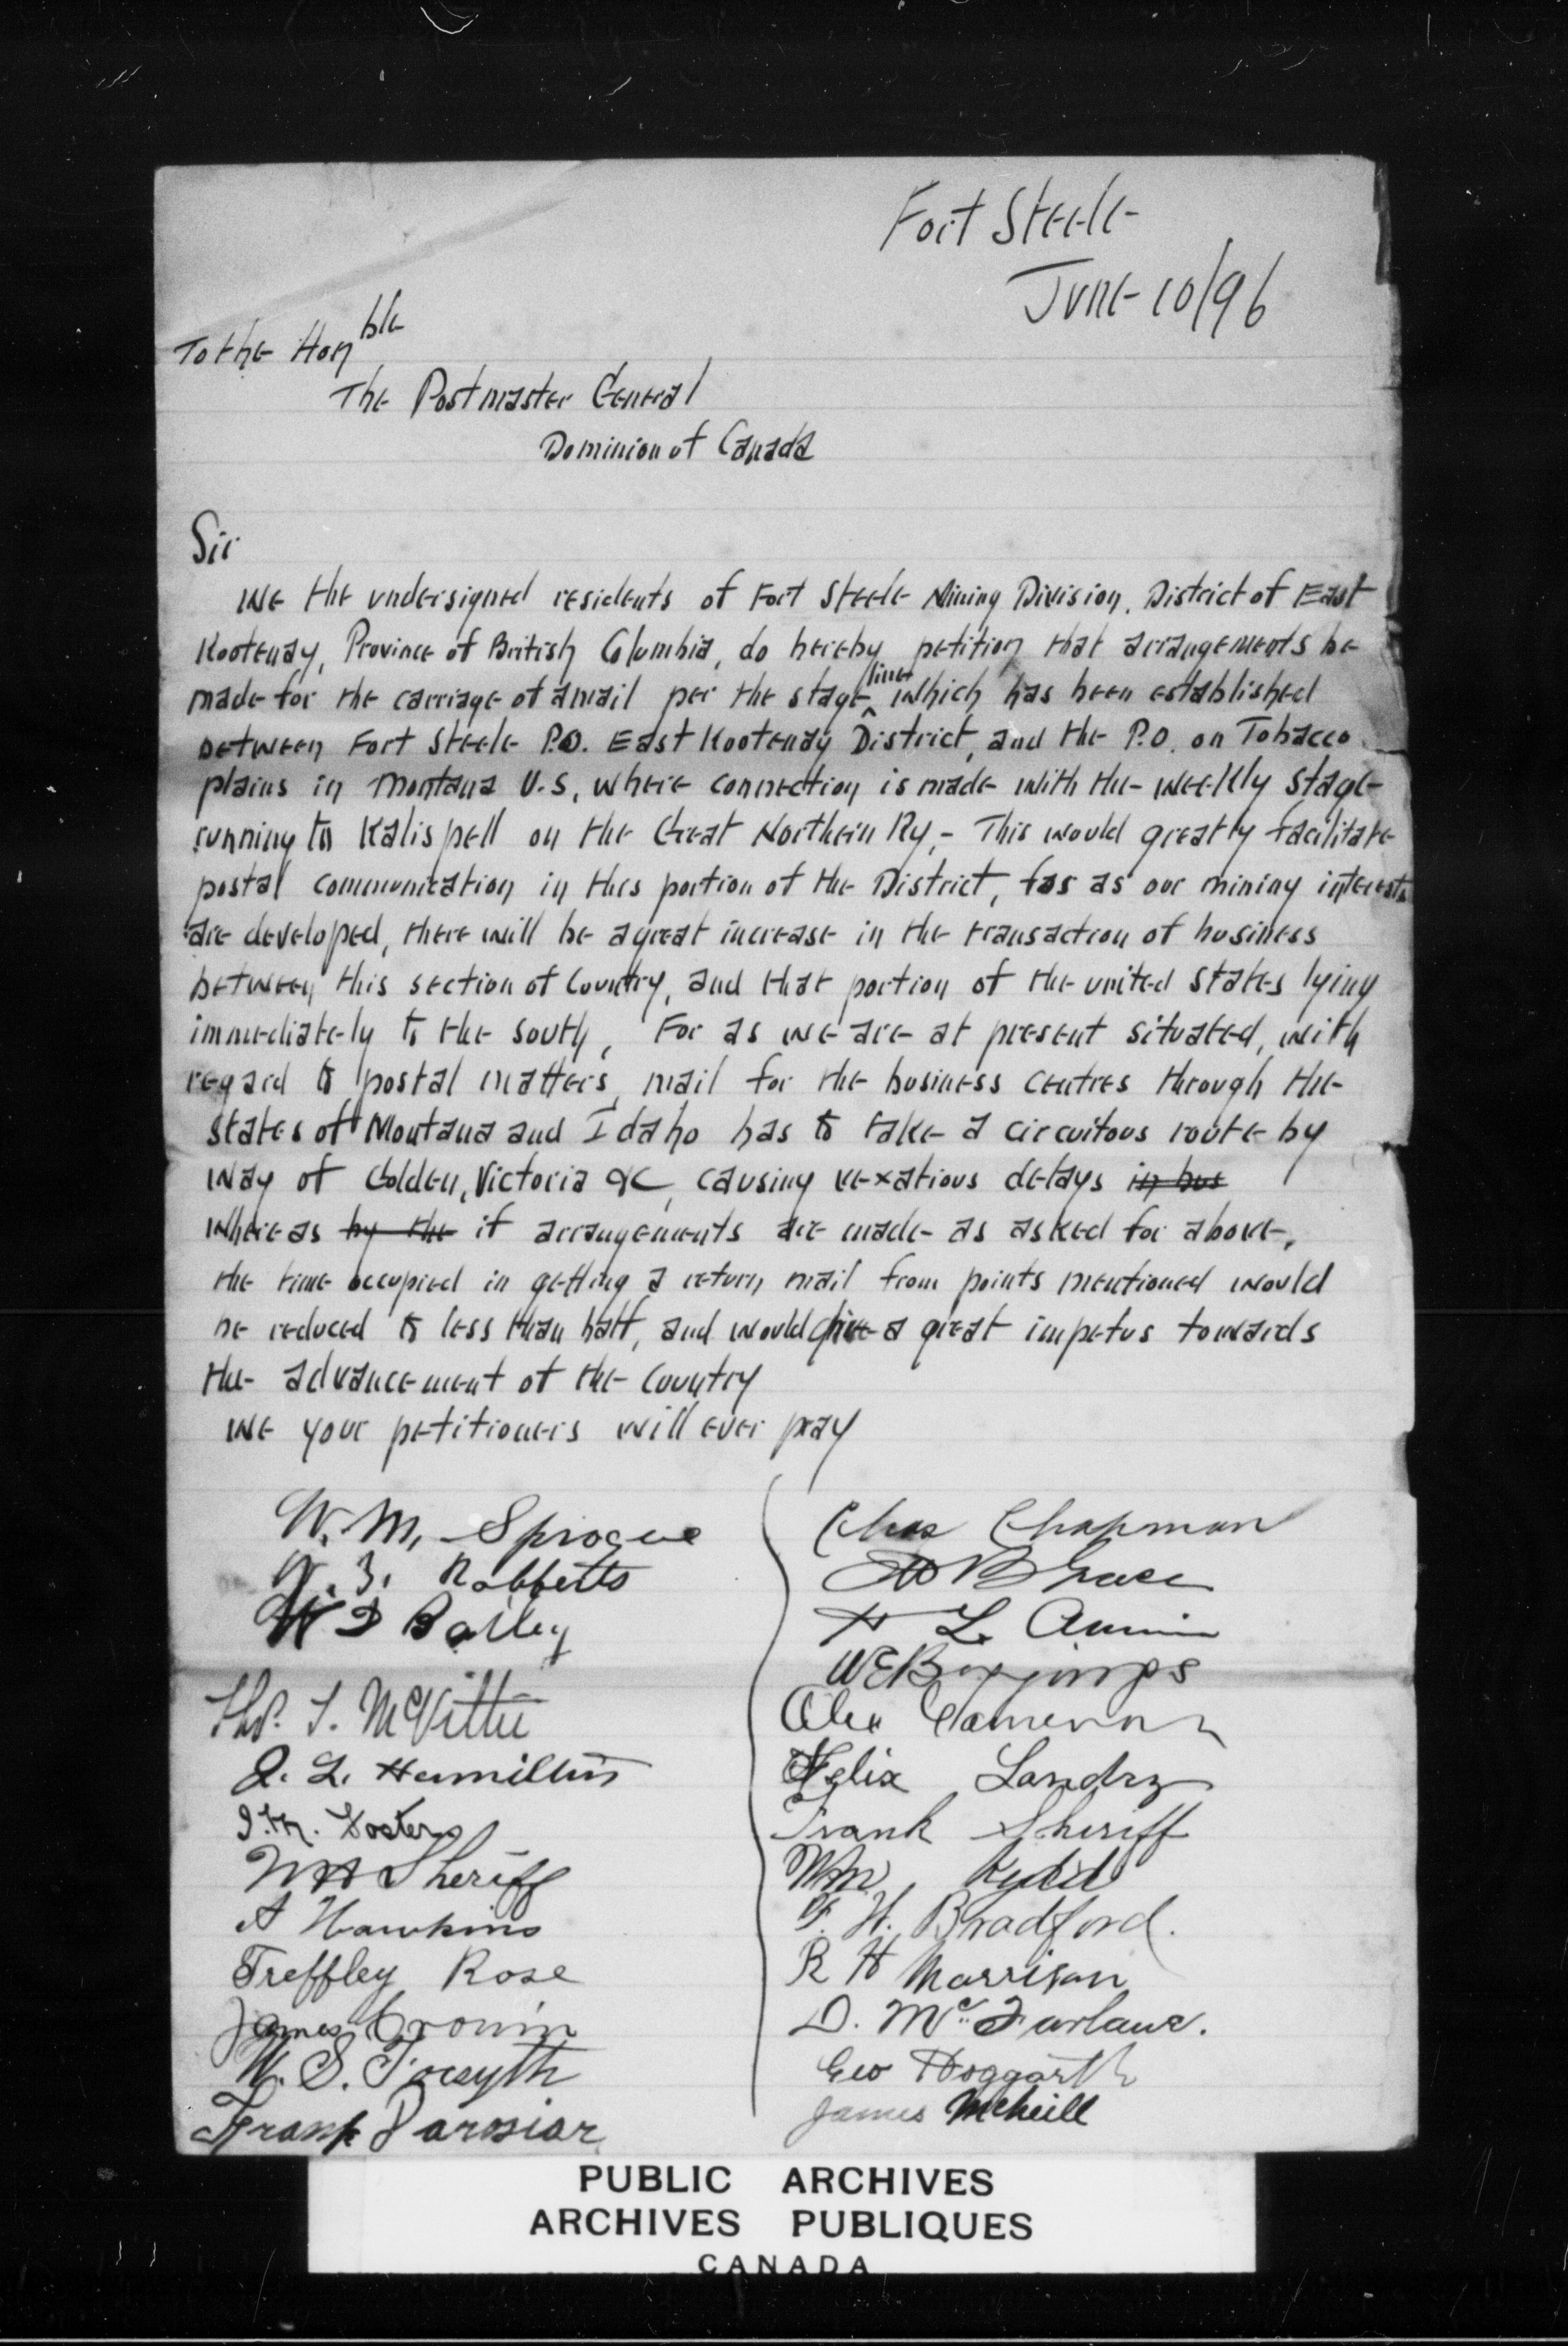 Fort Steele
June 10/96
To the Honble
The Postmaster General
Dominion of Canada
Sir
We the undersigned residents of Fort Steele Mining Division, District of East
Kootenay, Province of British Columbia, do hereby petition that arrangements be
made for the carriage of a mail per the stage line which has been established
between Fort Steele P.O. East Kootenay District, and the P.O. on Tobacco
plains in Montana U.S, where connection is made with the weekly stage
running to Kalispell on the Great Northern Ry, - This would greatly facilitate
postal communication in this portion of the District, for as our mining interests
are developed, there will be a great increase in the transaction of business
between this section of Country, and that portion of the united states lying
immediately to the south, For as we are at present situated, with
regard to postal matters, mail for the business centres through the
states of Montana and Idaho has to take a circuitous route by
way of Golden, Victoria &c, causing vexatious delays in bus
whereas by the if arrangements are made as asked for above,
the time occupied in getting a return mail from points mentioned would
be reduced to less than half, and would give a great impetus towards
the advancement of the Country
We your petitioners will ever pray
W. M. Sprogue
Robbetts
Bailey
Thos. T. McVittie
J. L. Hamilton
Foster
Sheriff
A Hawkins
Treffley Rose
James Cronin
W. S. Forsyth
Frank Parosiar
Chas Chapman
Grace
H L Amme
Alex Cameron
Felix Landry
Frank Sheriff
Wm Kydd
F. H. Bradford.
R H Morrison
D. McFarlane.
Geo Hoggarth
James McNeill
PUBLIC ARCHIVES
ARCHIVES PUBLIQUES
CANADA